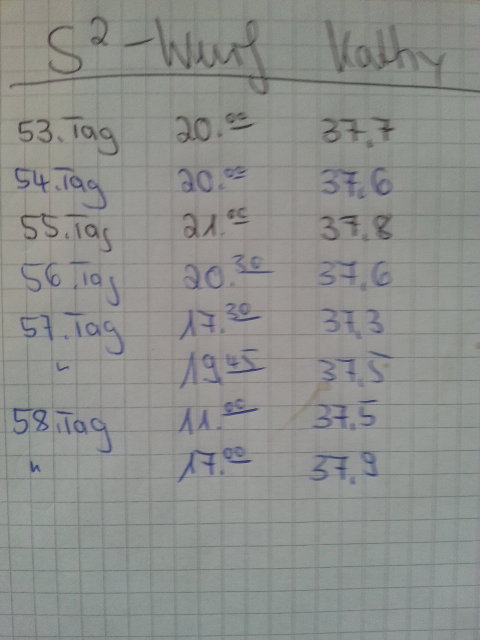 S² - Wurf Kathy
53. Tag 20.00 37,7
54. Tag 20.00 37,6
55. Tag 21.00 37,8
56. Tag 20.30 37,6
57. Tag 17.30 37,3
" 19.45 37,5
58. Tag 11.00 37,5
" 17.00 37,9